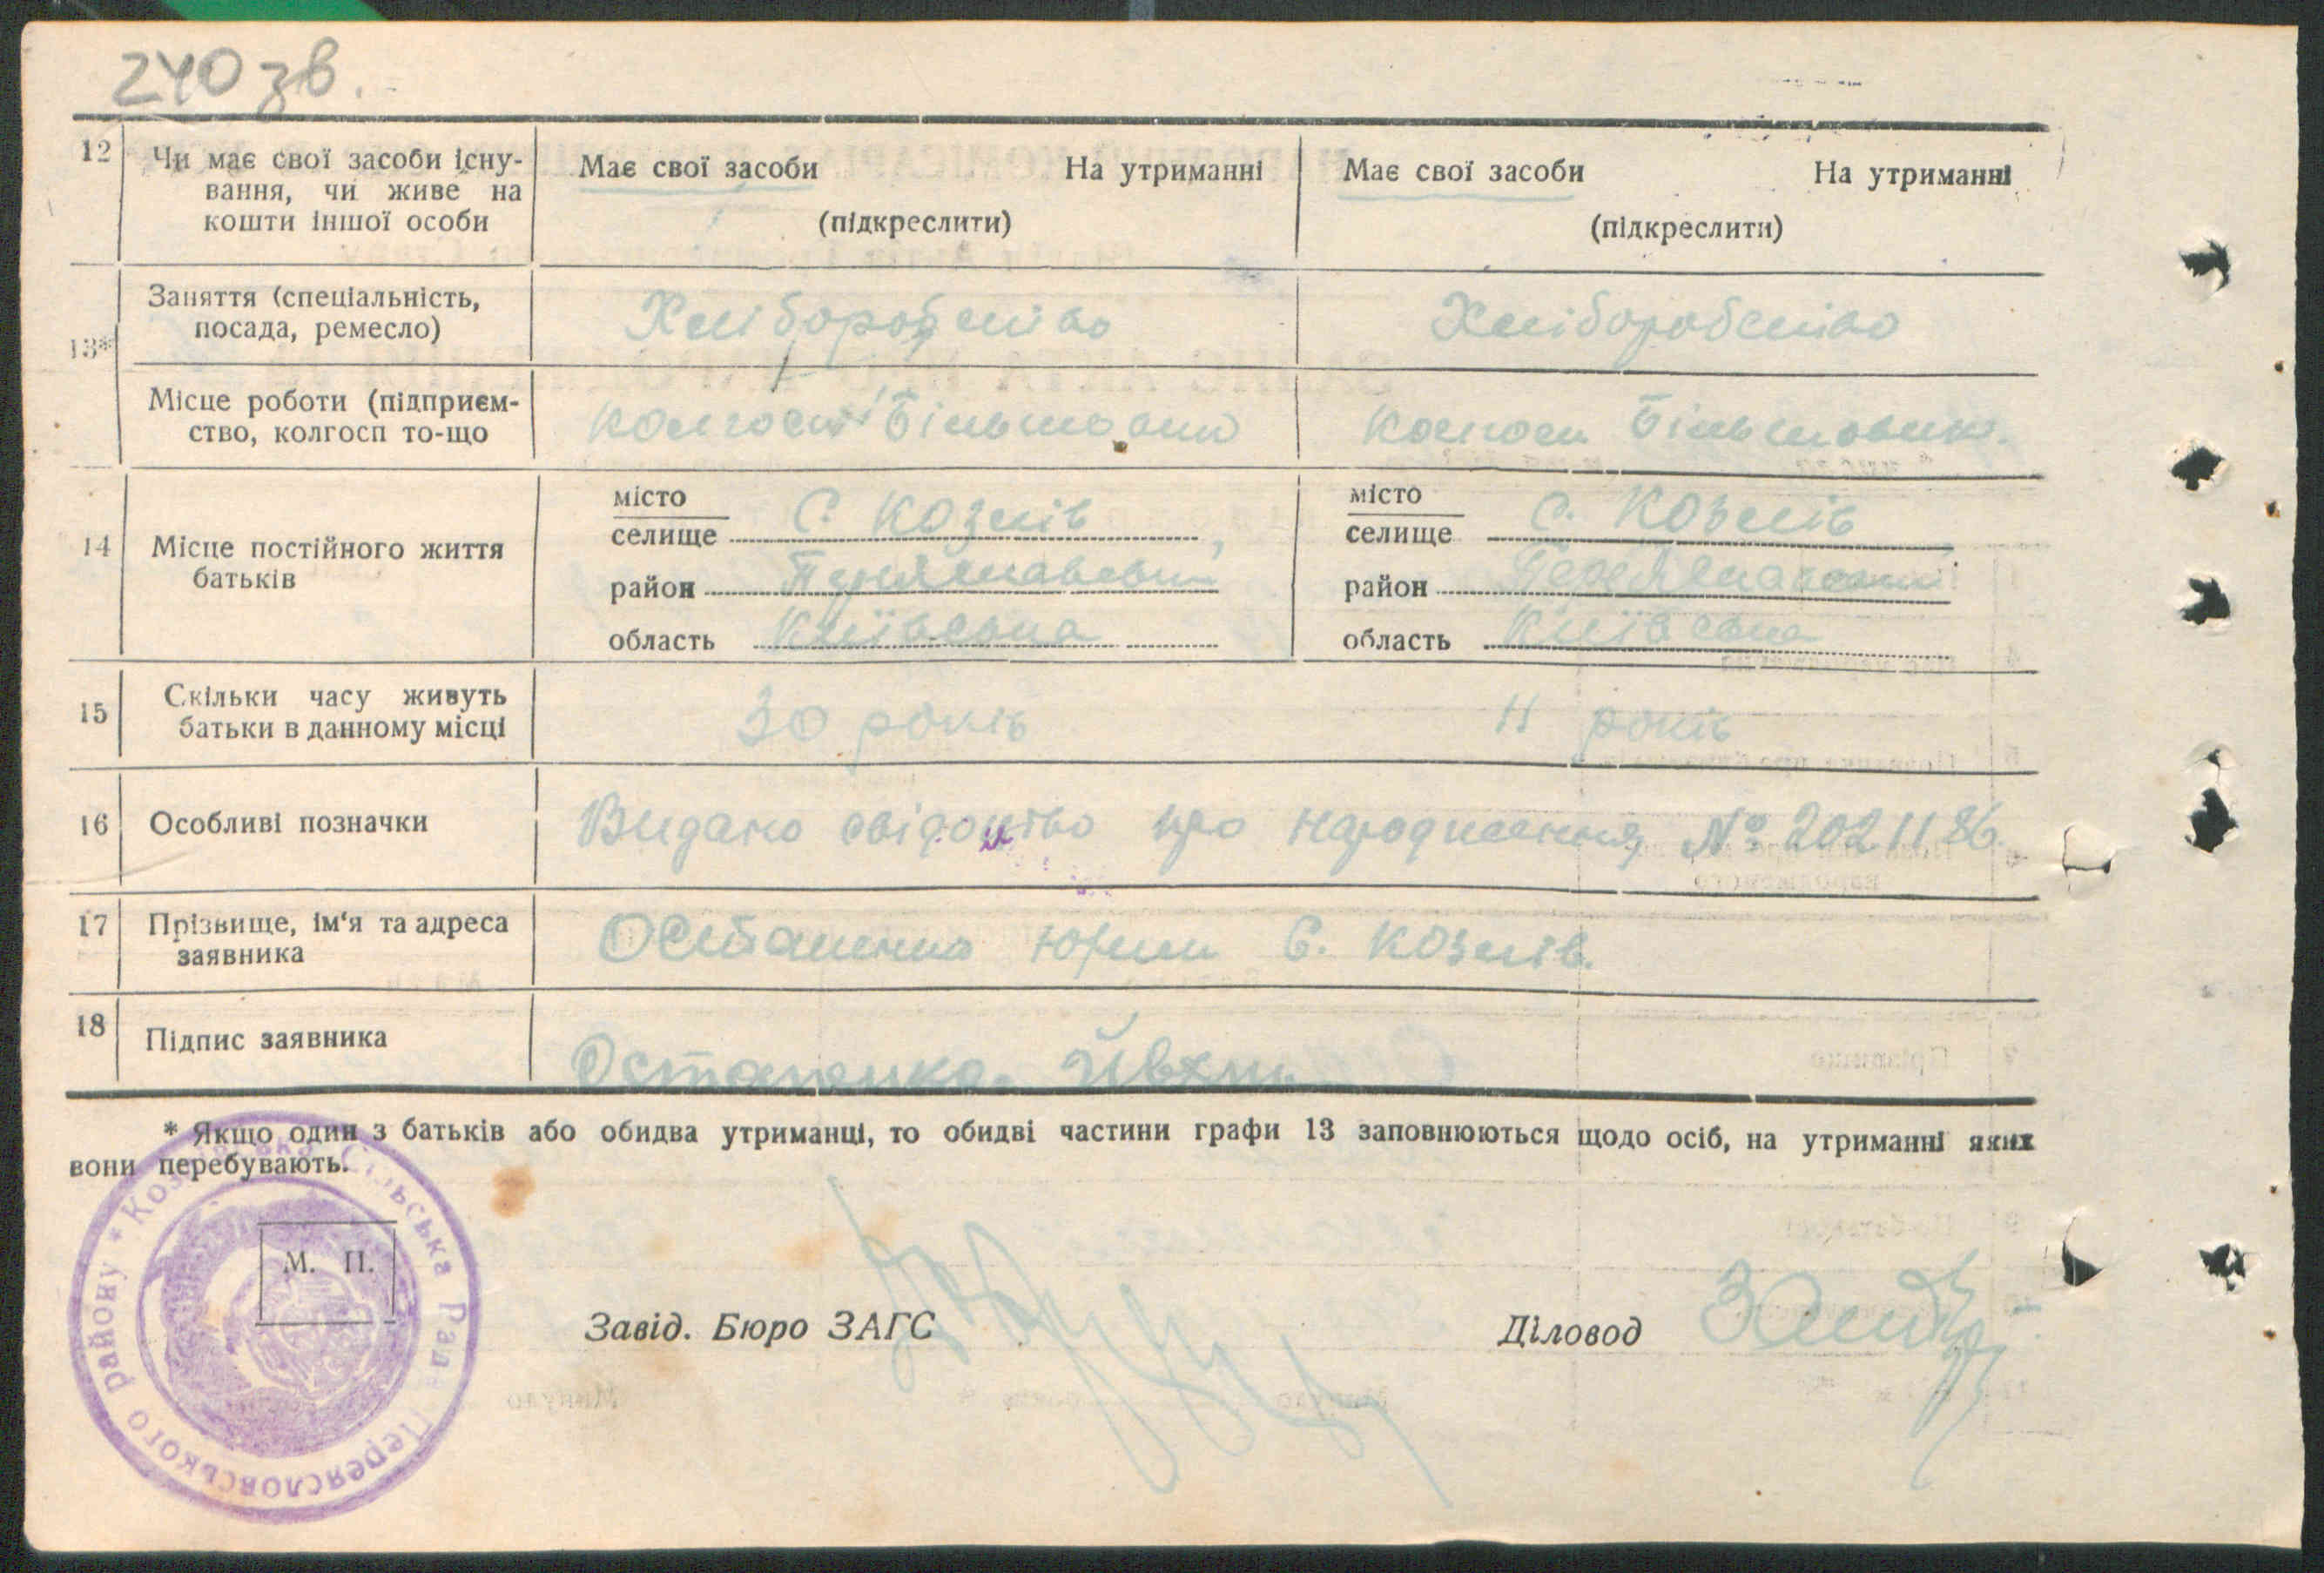 240 зв.
12 Чи має свої засоби існу- Має свої засоби На утриманні Має свої засоби На утриманні
вання, чи живе на
кошти іншої особи (підкреслити) (підкреслити)
Заняття (спеціальність, Хліборобство Хліборобство
посада, ремесло)
13*
Місце роботи (підприєм- колгосп Більшовик колгосп Більшовик.
ство, колгосп то-що
місто місто
селище С. Козлів селище С. Козлів
14 Місце постійного життя
батьків
район Переяславський район Переяславський
область Київська область Київська
15 Скільки часу живуть 30 років 11 років
батьки в данному місці
16 Особливі позначки Видано свідоцтво про народження № 2021186.
17 Прізвище, ім'я та адреса Остапенко С. Козлів.
заявника
18 Підпис заявника Остапенко
* Якщо один з батьків або обидва утриманці, то обидві частини графи 13 заповнюються щодо осіб, на утриманні яких
вони перебувають.
Сільська Рада Переясловського району *
М. П.
Завід. Бюро ЗАГС Діловод